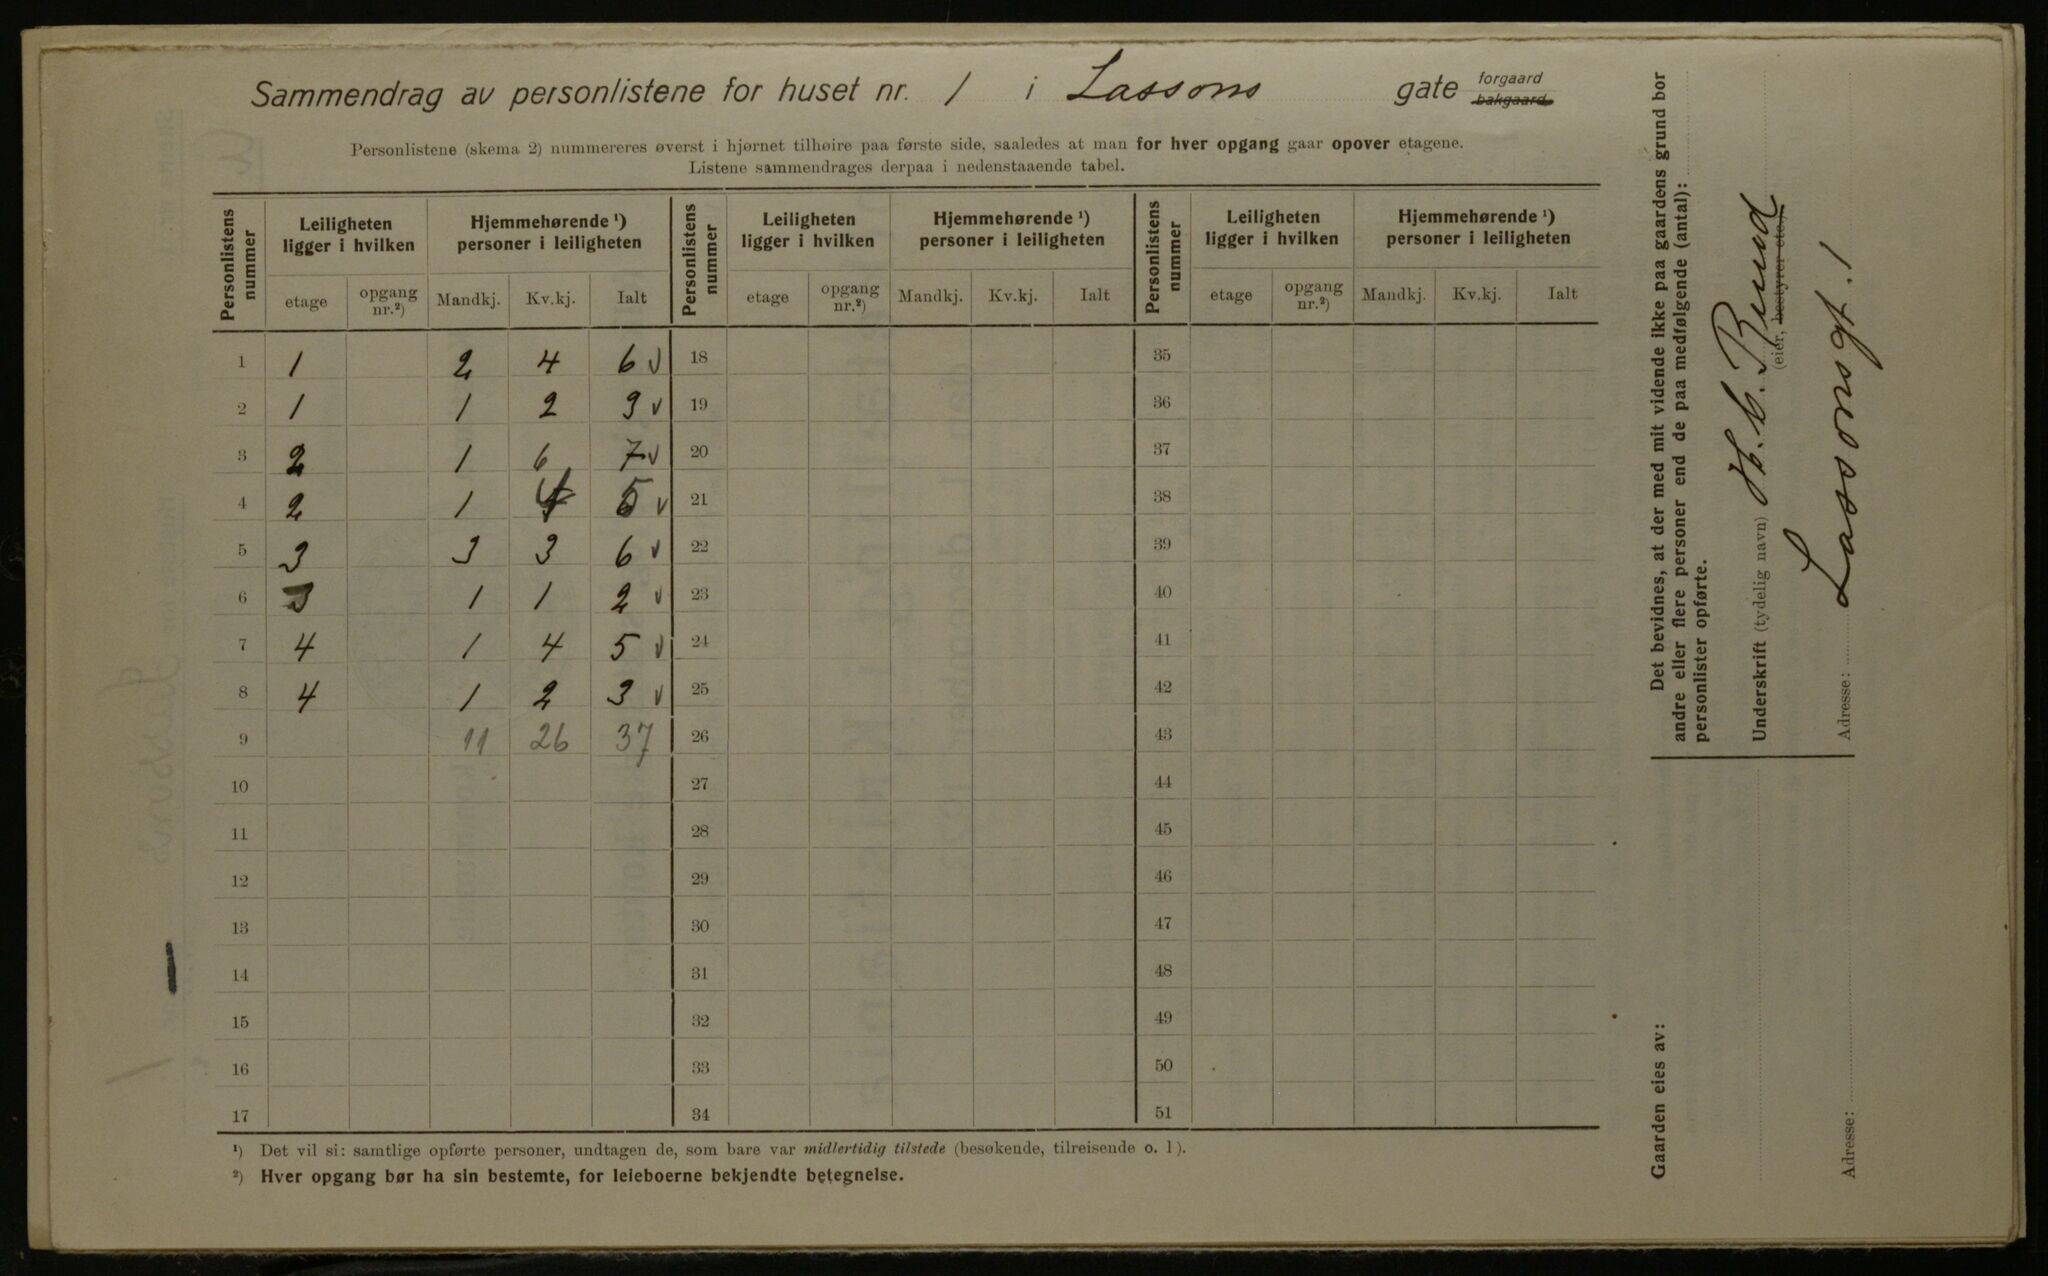 Sammendrag av personlistene for huset nr. 1 i Lassons gate forgaard bakgaard
Personlistene (skema 2) nummereres øverst i hjørnet tilhøire paa første side, saaledes at man for hver opgang gaar opover etagene.
Listene sammendrages derpaa i nedenstaaende tabel.
Personlistens nummer | Leiligheten ligger i hvilken | Hjemmehørende ¹) personer i leiligheten | Personlistens nummer | Leiligheten ligger i hvilken | Hjemmehørende ¹) personer i leiligheten | Personlistens nummer | Leiligheten ligger i hvilken | Hjemmehørende ¹) personer i leiligheten
etage | opgang nr.²) | Mandkj. | Kv.kj. | Ialt | etage | opgang nr.²) | Mandkj. | Kv.kj. | Ialt | etage | opgang nr.²) | Mandkj. | Kv.kj. | Ialt
1 | 1 | 2 | 4 | 6 v | 18 | 35
2 | 1 | 1 | 2 | 3 v | 19 | 36
3 | 2 | 1 | 6 | 7 v | 20 | 37
4 | 2 | 1 | 4 | 5 v | 21 | 38
5 | 3 | 3 | 3 | 6 v | 22 | 39
6 | 3 | 1 | 1 | 2 v | 23 | 40
7 | 4 | 1 | 4 | 5 v | 24 | 41
8 | 4 | 1 | 2 | 3 v | 25 | 42
9 | 11 | 26 | 37 | 26 | 43
10 | 27 | 44
11 | 28 | 45
12 | 29 | 46
13 | 30 | 47
14 | 31 | 48
15 | 32 | 49
16 | 33 | 50
17 | 34 | 51
¹) Det vil si: samtlige opførte personer, undtagen de, som bare var midlertidig tilstede (besøkende, tilreisende o. l).
²) Hver opgang bør ha sin bestemte, for leieboerne bekjendte betegnelse.
Det bevidnes, at der med mit vidende ikke paa gaardens grund bor
andre eller flere personer end de paa medfølgende (antal):
personlister opførte.
Underskrift (tydelig navn) H. C.
(eier, bestyrer etc.)
Adresse: Lassonsgt. 1
Gaarden eies av:
Adresse: